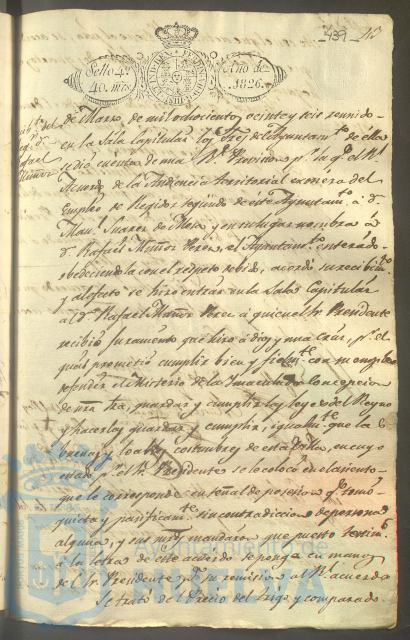 439 213
Sello 4º
40. mrs.
Año de
1826.
de Marzo, de mil ochocientos veinte y seis reunido
en la Sala Capitular los Sres. de Ayuntamto. de ella
se dio cuenta de una Rl. Provision pr. la q. el Rl.
Acuerdo de la Audiencia territorial exonera del
Empleo de Regidor segundo de este Ayuntamto. á D.
Manl. Suarez de y en su lugar nombra á
D. Rafael Muñoz Perez, el Ayuntamto. enterado
obedeciendola con el respeto debido, acordó su recibimto.
y al efecto se hizo entrar en la Sala Capitular
al D. Rafael Muñoz Perez á quien el Sr. Presidente
recibió juramento que hizo á dios y una Cruz, pr. el
qual prometió cumplir bien y fielmte. con su empleo
defender el Misterio de la Inmaculada Concepcion
de ntra. Sra., guardar y cumplir las leyes del Reyno
y hacerlas guardar y cumplir, igualmte. que las
buenas y loables costumbres de esta Villa, en cuyo
estado pr. el Sr. Presidente se le colocó en el asiento
que le corresponde en señal de posesion q. tomó
quieta y pacificamte. sin contradiccion de persona
alguna, y sus mrds. mandaron que puesto testimo.
á la letra de este acuerdo se ponga en manos
del Sr. Presidente pa. su remision al Rl. acuerdo
Se trató del Precio del trigo y comparado